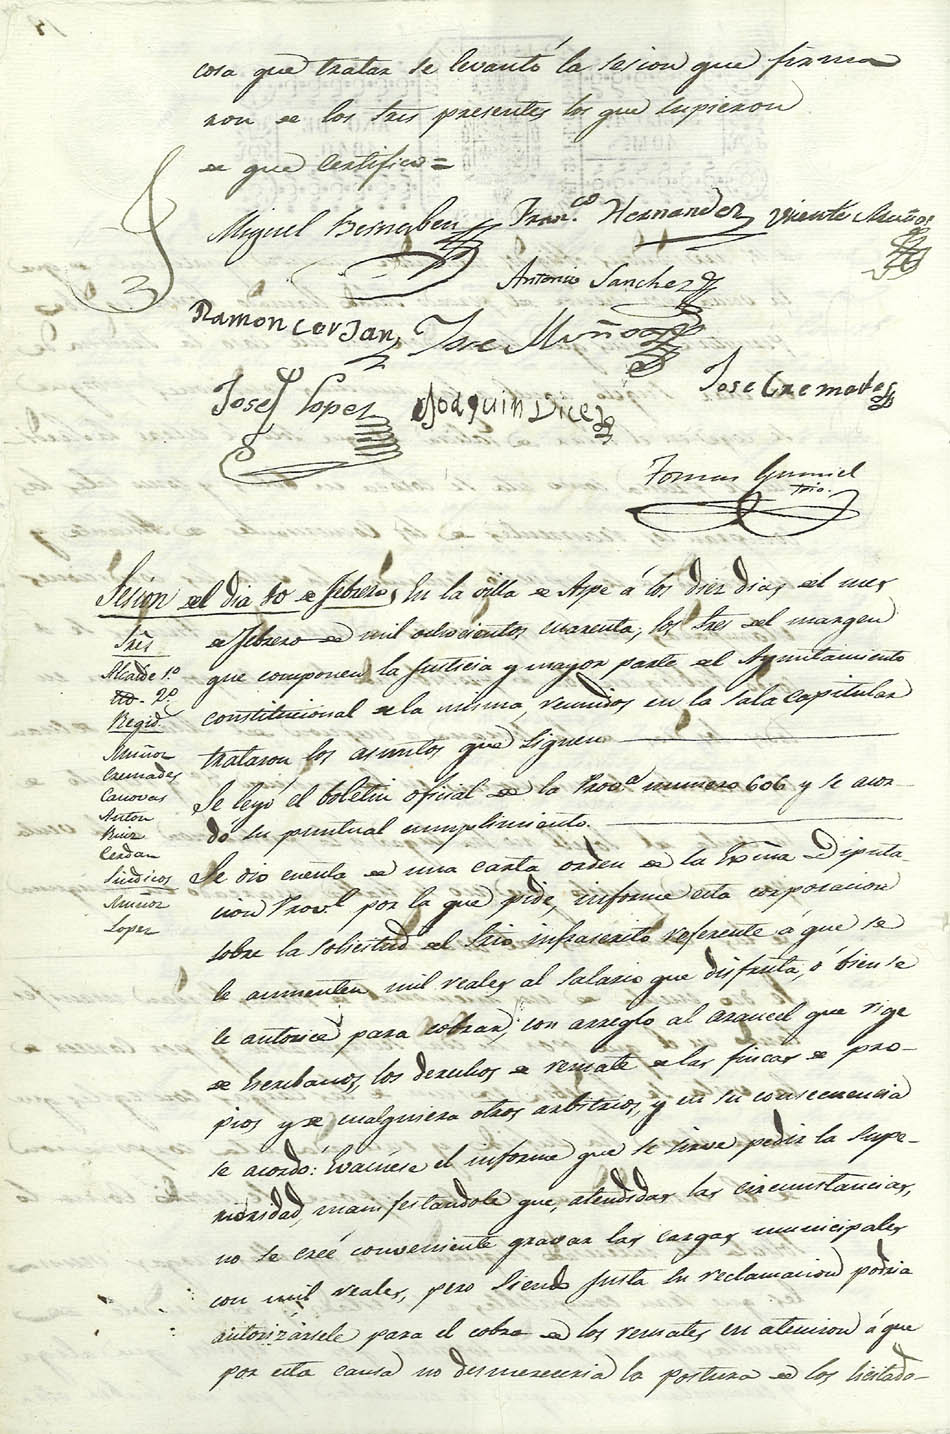 cosa que tratar se levantó la sesion que firma
ron de los Sres presentes los que supieron
de que certifico =
Miguel Bernabeu Fran.co Hernandez Vicente Muñoz
Antonio Sanchez
Ramon Cerdan Jose Muñoz
Jose Cremades
Josef Lopez Joaquin Vicedo
Tomas Gumiel
Srio.
Sesion del dia 10 de Febrero, En la villa de Aspe á los diez dias del mes
Sres
de Febrero de mil ochocientos cuarenta; los Sres del margen
Alcalde 1.o
que componen la Justicia y mayor parte del Ayuntamiento
2.o
constitucional de la misma, reunidos en la sala capitular
Regid.
trataron los asuntos que siguen
Muñoz
Cremades
Se leyó el boletin oficial de la Prov.a numero 606 y se acor-
Canovas
Anton
dó su puntual cumplimiento.
Ruiz
Cerdan
Se dio cuenta de una carta orden de la Exma Diputa
Sindicos
cion Prov.l por la que pide, informe esta corporacion
Muñoz
Lopez
sobre la solicitud del Srio infrascrito referente á que se
le aumenten mil reales al salario que disfruta, ó bien se
le autorice para cobrar, con arreglo al arancel que rige
de Escribanos, los derechos de remate de las fincas de pro-
pios y de cualquiera otros arbitrios, y en su consecuencia
se acordó: Evacuese el informe que se sirve pedir la supe-
rioridad, manifestandole que, atendidas las circunstancias,
no se creé conveniente gravar las cargas municipales
con mil reales, pero siendo justa su reclamacion podria
autorizársele para el cobro de los remates en atencion á que
por esta causa no desmereceria la postura de los licitado-